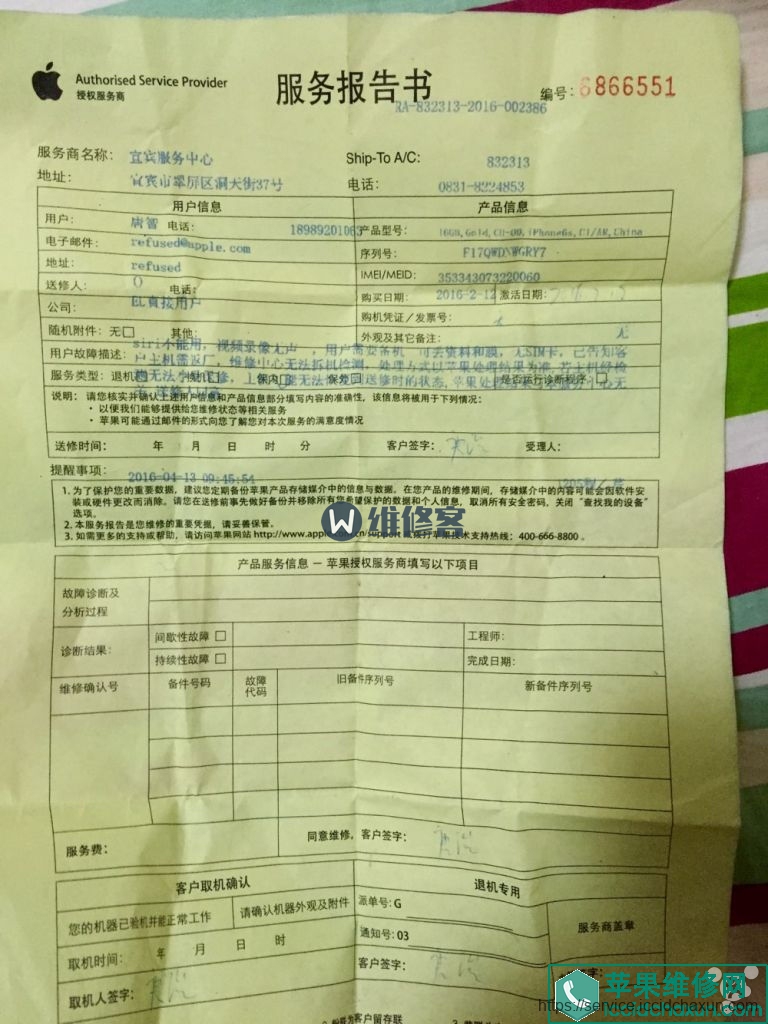 Authorised Service Provider
授权服务商
服务报告书
编号: 6866551
RA-832313-2016-002386
服务商名称: 宜宾服务中心
Ship-To A/C: 832313
地址: 宜宾市翠屏区洞天街37号
电话: 0831-8224853
用户信息
产品信息
用户: 唐智 电话: 18989201063
产品型号: 16GB, Gold, CH-00, iPhone6s, CI/AR, China
电子邮件: refused@apple.com
序列号:
地址: refused
IMEI/MEID: 353343073220060
送修人: () 电话:
购买日期: 2016-2-12 激活日期:
公司: EL直接用户
购机凭证／发票号:
随机附件: 无 其他:
外观及其它备注: 无
用户故障描述: siri不能用，视频录像无声，用户需要备机，可丢资料和膜，无SIM卡，已告知客
户主机需返厂，维修中心无法拆机检测，处理方式以苹果处理结果为准，若主机经检
服务类型: 退机 候机 保内 保外
是否运行诊断程序:
说明: 请您核实并确认上述用户信息和产品信息部分填写内容的准确性，该信息将被用于下列情况:
• 以便我们能够提供给您维修状态等相关服务
• 苹果可能通过邮件的形式向您了解您对本次服务的满意度情况
送修时间: 年 月 日 时 分 客户签字: 受理人:
提醒事项: 2016-04-13 09:45:54
1. 为了保护您的重要数据，建议您定期备份苹果产品存储媒介中的信息与数据，在您产品的维修期间，存储媒介中的内容可能会因软件安
装或硬件更改而消除。请您在送修前事先做好备份并移除所有您希望保护的数据和个人信息，取消所有安全密码，关闭“查找我的设备”
选项。
2. 本服务报告是您维修的重要凭据，请妥善保管。
3. 如需更多的支持或帮助，请访问苹果网站 http://www.apple.com.cn/support 或拨打苹果技术支持热线: 400-666-8800 。
W 维修客
产品服务信息 － 苹果授权服务商填写以下项目
故障诊断及
分析过程
诊断结果:
间歇性故障
持续性故障
工程师:
完成日期:
维修确认号 备件号码 故障代码 旧备件序列号 新备件序列号
服务费:
同意维修，客户签字:
客户取机确认
退机专用
您的机器已验机并能正常工作
请确认机器外观及附件
派单号: G
通知号: 03
服务商盖章
取机时间: 年 月 日 时
客户签字:
取机人签字:
客户留存联
苹果维修网
https://service.iccidchaxun.com
iccidchaxun.com